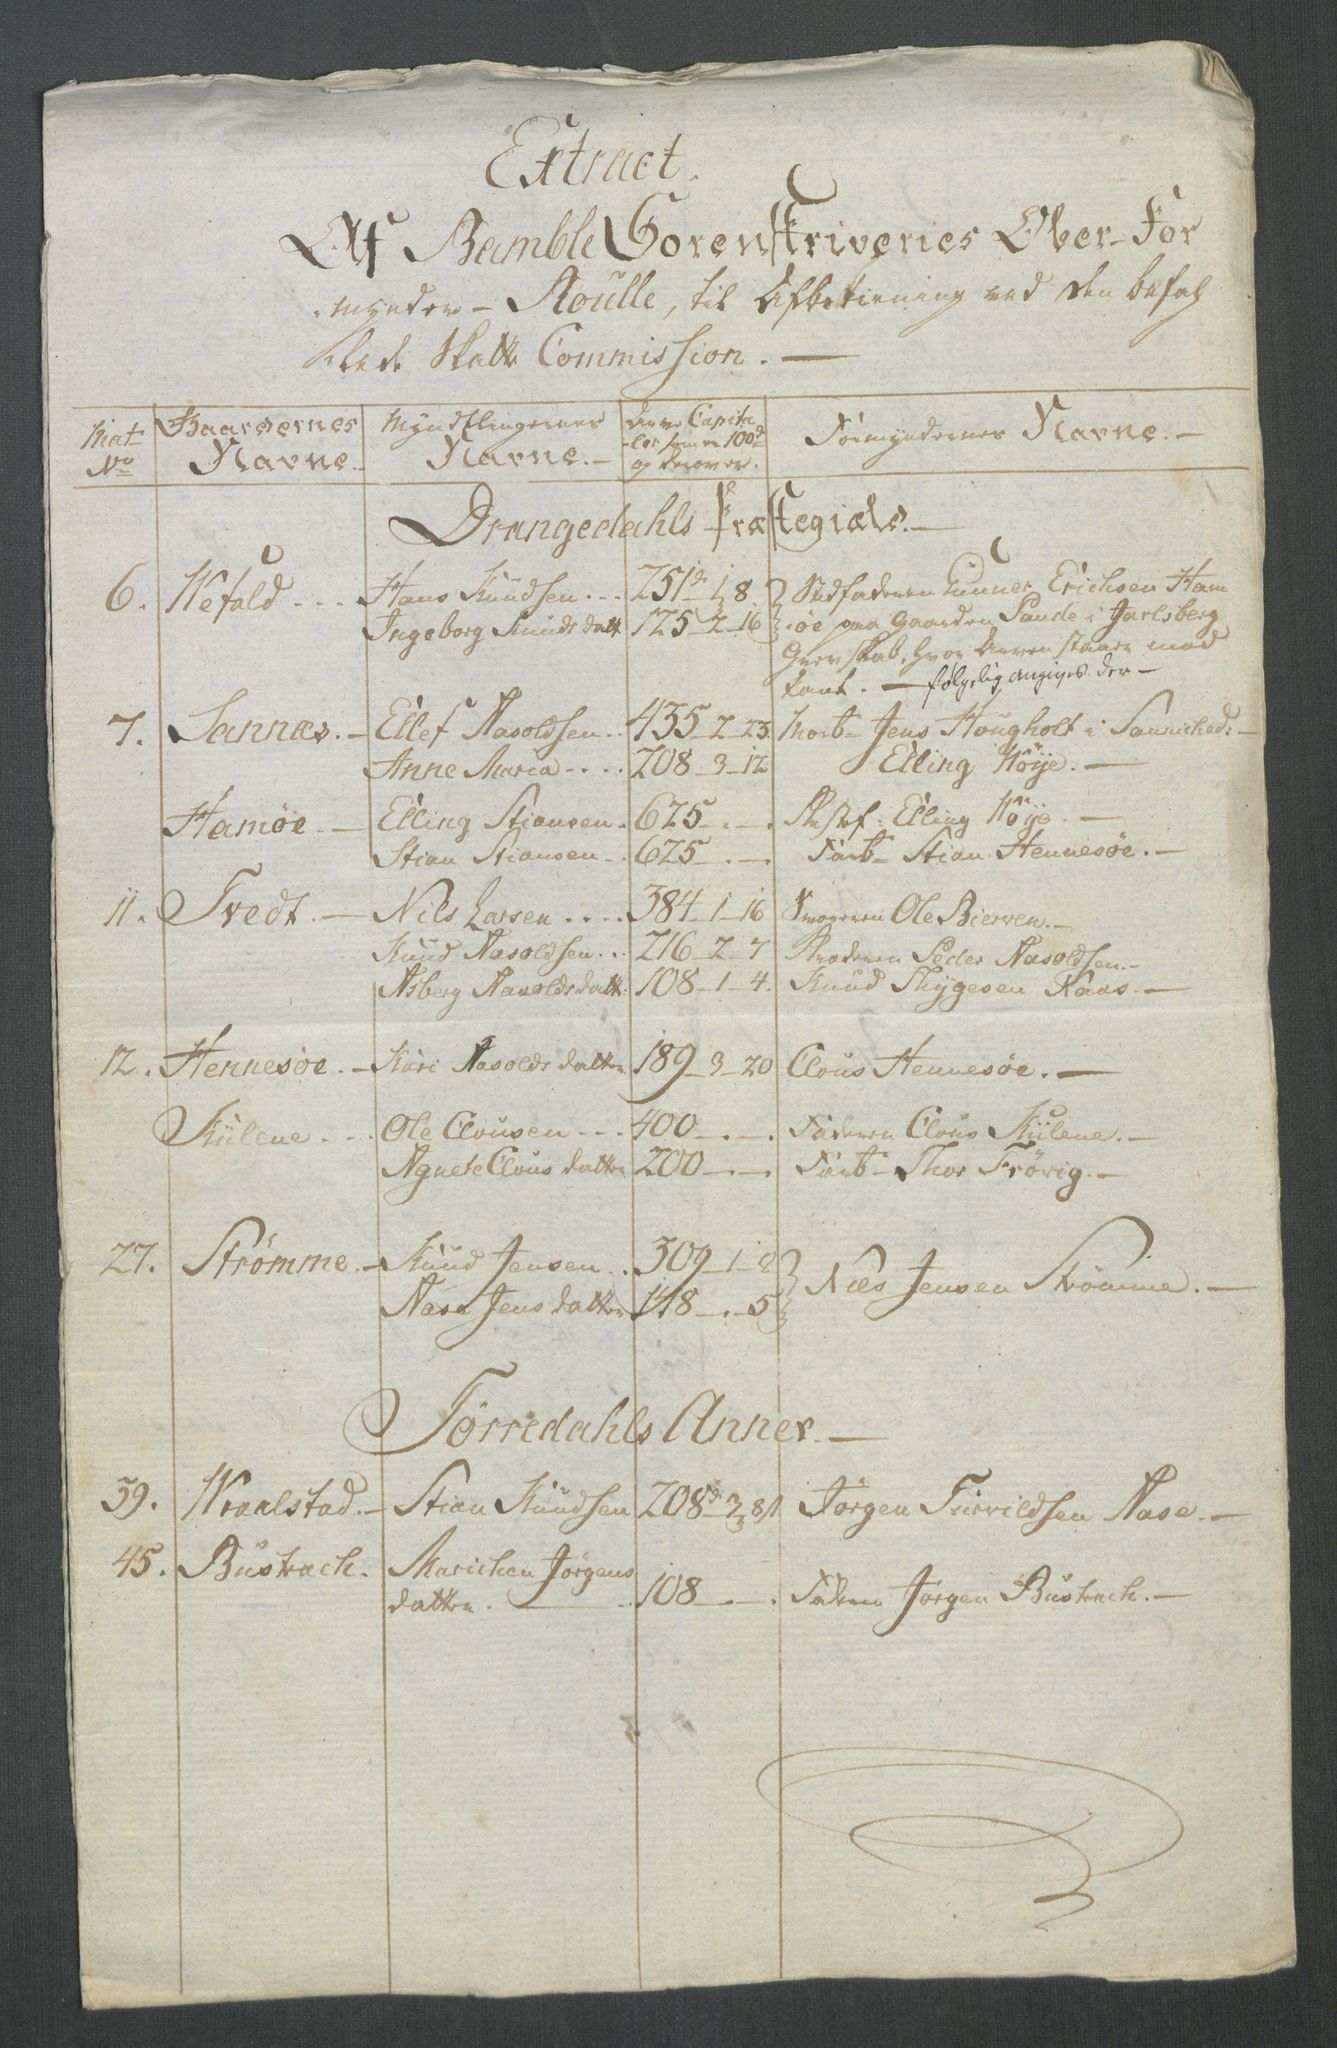 Extract.
Af Bamble Sorenskriveries Ober-For
mynder-Roulle, til Afbetiening ved den befah
lede Skatte Commission. —
Mat No | Gaardernes Navne. | Myndtlingernes Navne. - | deres Capitaler som er 100d og derover. | Formyndernes Navne. -
Drangedahls Præstegield. —
6. Wefald - - - Hans Knudsen - - - 251d 1 8 } Stedfaderen Gunner Erichsen Ham
Ingeborg Knuds datt 125 - 2 - 16 } øe paa Gaarden Sande i Jarlsberg
Grevskab, hvor Arven staaer mod
Pant. — følgelig angives der —
7. Sannæs. - Ellef Aasoldsen - - 435 - 2 - 23. Morb- Jens Hougholt i Sannichedl: -
Anne Maria - - - - 208 - 3 - 12 Elling Höÿe. —
Hamøe. — Elling Stiansen. 625 - . - . Stedf: Elling Höÿe. —
Stian Stiansen - . 625 - . - . Farb- Stian Hennesøe. —
11. Tvedt. — Nils Larsen - - - - 384 - 1 - 16 Svogeren Ole Bierven. -
Knud Aasoldsen - - - 216 - 2 - 7 Broderen Peder Aasoldsen. -
Asberg Aasolds datt: 108 - 1 - 4. Knud Thygesen Kaas. -
12. Hennesøe. - Kari Aasolds datter 189 - 3 - 20 Clous Hennesøe. —
Kiilene - - - Ole Clousen - - - 400 - . - . Faderen Clous Kiilene. —
Agnete Clous datter 200 - . - . Farb- Thor Frövig. -
27. Strømme. - Knud Jensen - . 309 - 1 - 8 } Niels Jensen Strömme. —
Aase Jens datter 148 - . 5 }
Törredahls Annex. —
39. Wraalstad. - Stian Knudsen 208d 3 8/ Jörgen Tarvildsen Aase. -
45. Bustrach. Marichen Jörgens
datter. — 108 - . - . Faderen Jörgen Bustrach. -